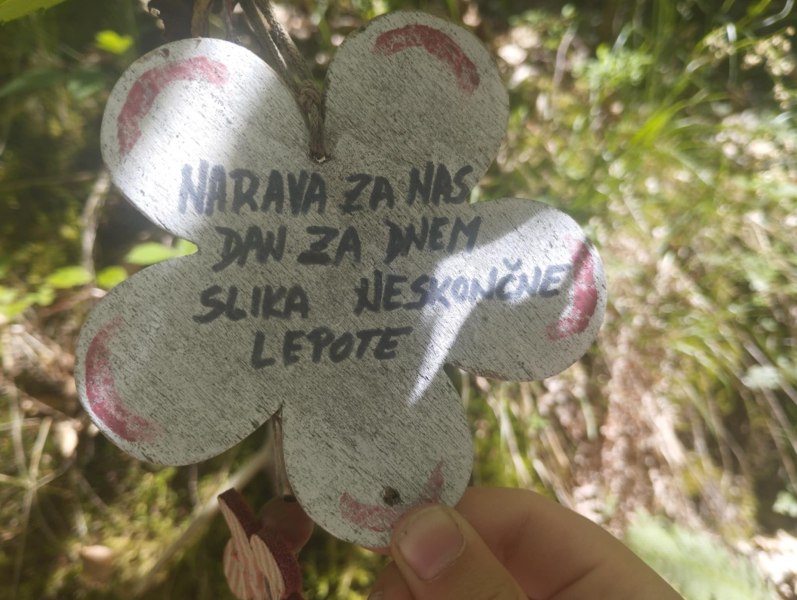 NARAVA ZA NAS
DAN ZA DNEM
SLIKA NESKONČNE
LEPOTE